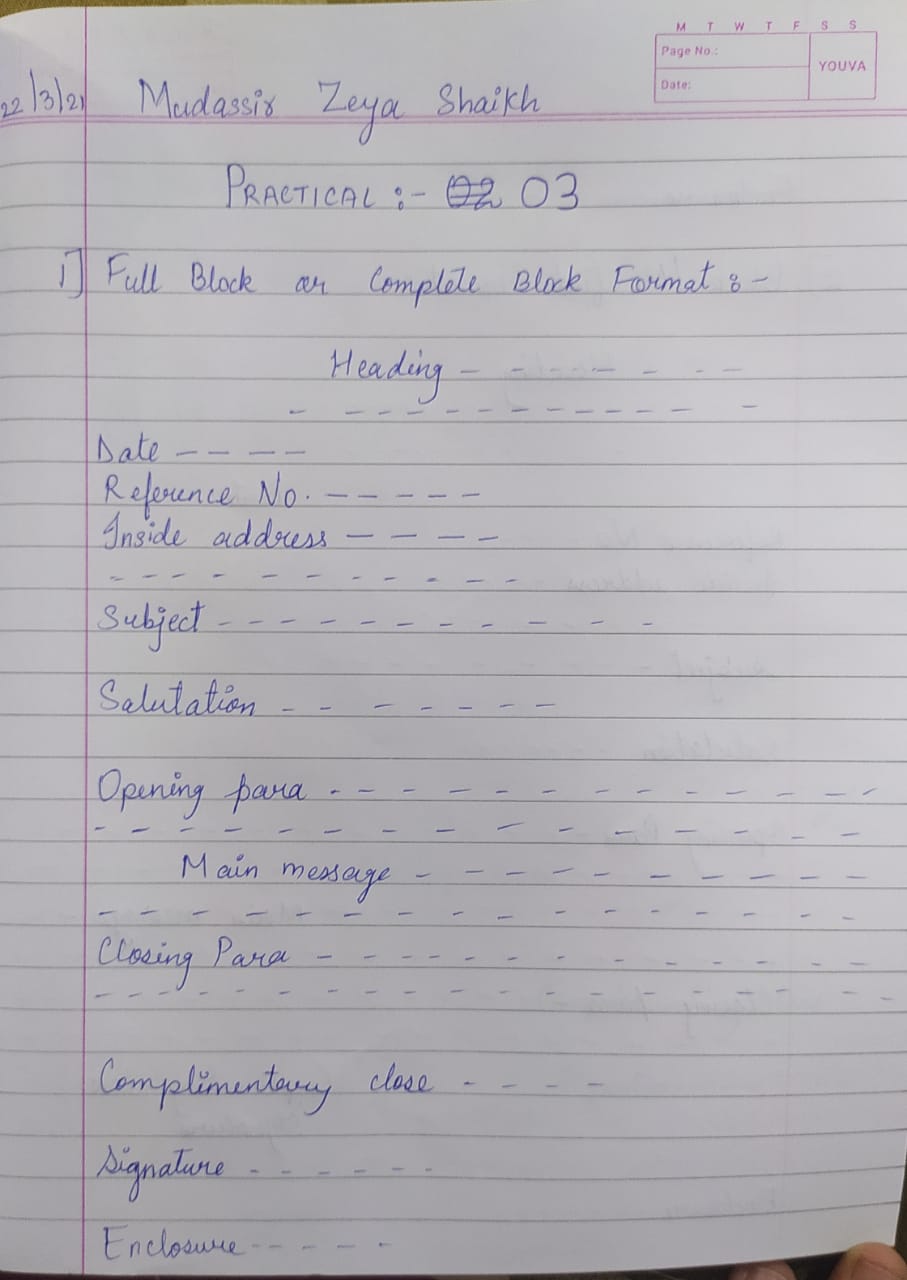 M T W T F S S
Page No.:
YOUVA
Date:
22/3/21 Mudassir Zeya Shaikh
PRACTICAL :- 03
1] Full Block or Complete Block Format :-
Heading - - - - - - -
- - - - - - - - - - -
Date - - - -
Reference No. - - - - -
Inside address - - - -
- - - - - - - - - - -
Subject - - - - - - - - - - -
Salutation - - - - - - -
Opening para - - - - - - - - - - - -
- - - - - - - - - - - - - - - -
Main message - - - - - - - - - -
- - - - - - - - - - - - - - - -
Closing Para - - - - - - - - - - - -
- - - - - - - - - - - - - - - - -
Complimentary close - - - -
Signature - - - - - -
Enclosure - - - - -